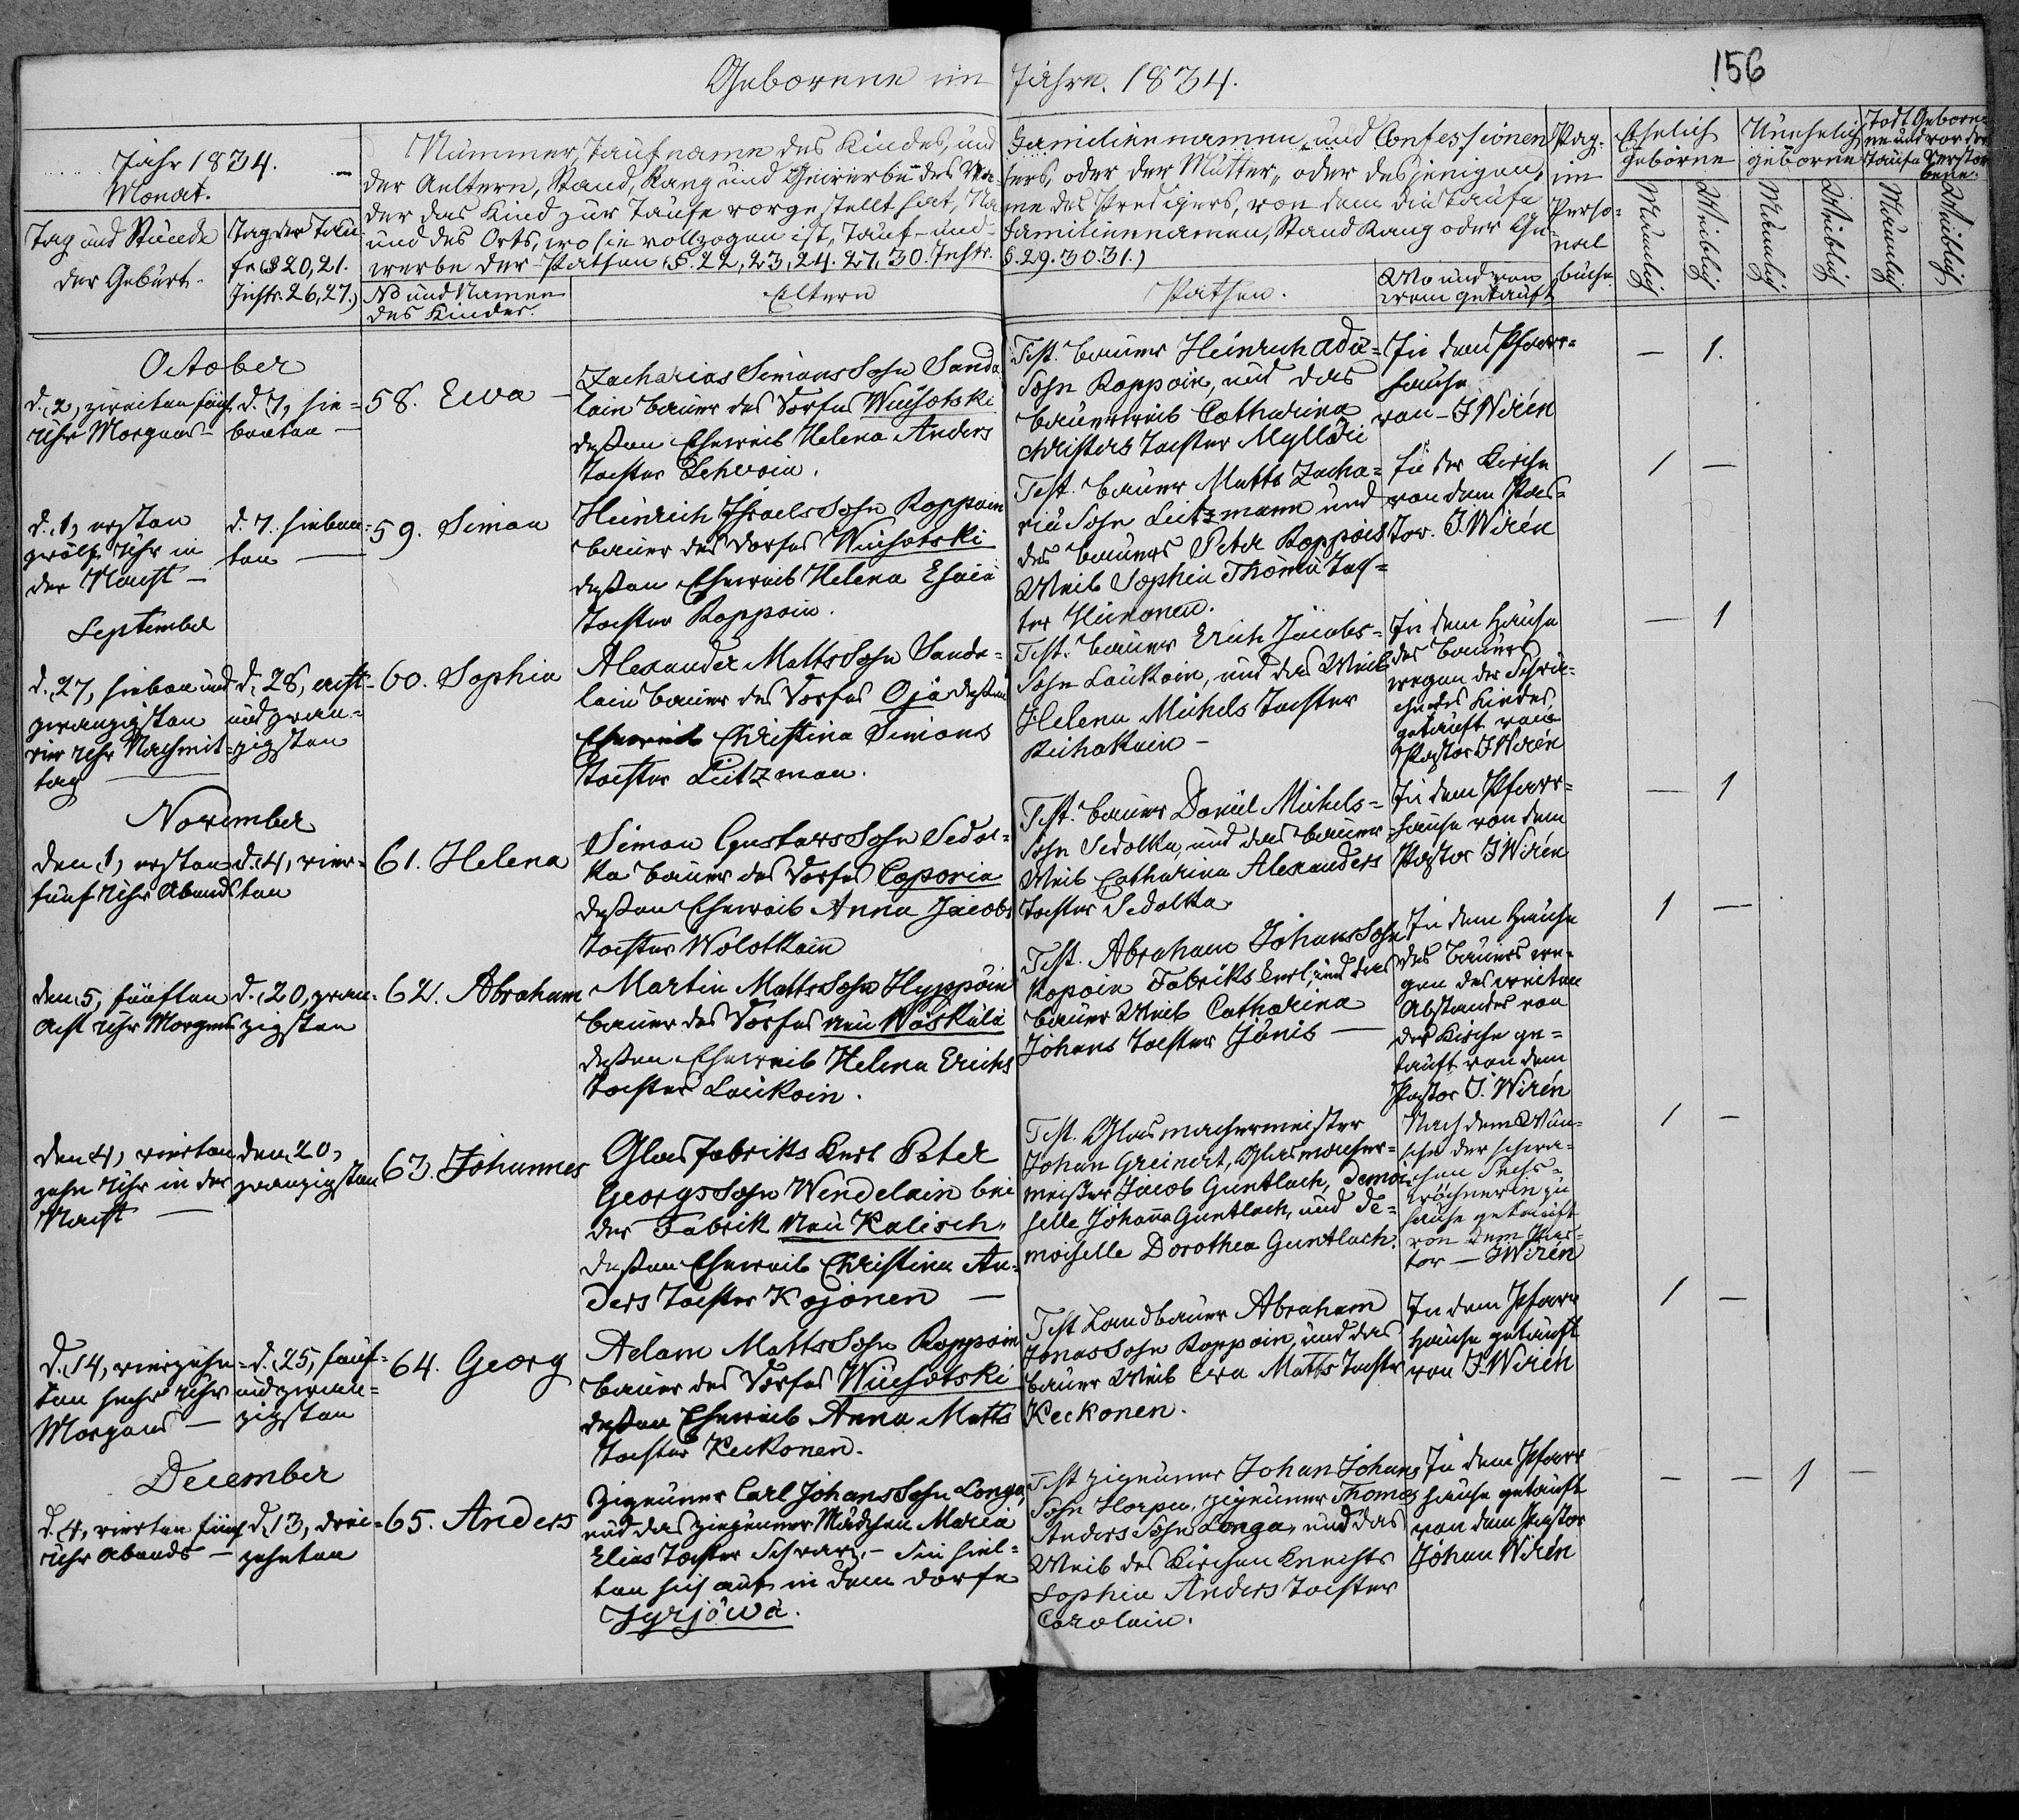 Geborene im Jahre. 1834.
156
Jahr 1834.
Monat.
Tag und Stunde
der Geburt.
Tag der Tau-
fe (§ 20, 21.
Instr. 26, 27.)
Nummer, Taufname des Kindes, und Familiennamen und Confessionen
der Aeltern, Stand, Rang und Gewerbe des Va- ters, oder der Mutter, oder desjenigen,
der das Kind zur Taufe vorgestellt hat, Na- me des Predigers, von dem die Taufe
und des Orts, wo sie vollzogen ist, Tauf- und Familiennamen, Stand Rang oder Ge-
werbe der Pathen (§. 22, 23, 24. 27, 30. Instr. §. 29. 30. 31.)
No und Namen
des Kindes.
Eltern
Pathen.
Wo und von
wem getauft
Pag.
im
Perso-
nal
buche
Ehelich
geborne
Unehelich
geborne
Todt Gebore-
ne und vor der
Taufe Verstor-
bene.
Männlich
Weiblich
Männlich
Weiblich
Männlich
Weiblich
October
d. 2, zweiten fünf
Uhr Morgens —
d. 7, sie-
benten —
58. Ewa —
Zacharias Simons Sohn Sanda-
lain bauer des Dorfes Wuihotski
deßen Eheweib Helena Anders
Tochter Lehvoin.
Test. bauer Heinrich Adu-
Sohn Roppoin, und das
bauerweib Catharina
Christers Tochter Mylläri
In dem Pfarr-
hause
von — J Wirén
— 1.
d. 1, ersten
zwölf Uhr in
der Nacht —
d. 7. sieben-
ten —
59. Simon
Heinrich Israels Sohn Roppoin
bauer des Dorfes Wuihotski
deßen Eheweib Helena Esaia
Tochter Roppoin.
Test. bauer Matts Zacha-
riä Sohn Leitzmann und
des bauers Peter Roppois
Weib Sophia Thomä Toch-
ter Hünonen.
In der Kirche
von dem Pas-
tor. J. Wirén
1 —
September
d. 27, sieben und
zwanzigsten
vier Uhr Nachmit-
tag —
d. 28, acht-
und zwan-
zigsten
60. Sophia
Alexander Matts Sohn Sanda-
lain bauer des Dorfes Oja deßen
Eheweib Christina Simons
Tochter Leitzman.
Test. bauer Erich Jacobs-
Sohn Laukain, und das Weib
Helena Michels Tochter
Reihakain —
In dem Hause
des bauers
wegen der Schwä-
che des Kindes,
getauft von
Pastor J Wirén
— 1
November
den 1, ersten
fünf Uhr Abends
d. 4, vier-
ten
61. Helena
Simon Gustavs Sohn Sedol-
ka bauer des Dorfes Caporia
deßen Eheweib Anna Jacobs
Tochter Wolotkain
Test. bauer Daniel Michels-
Sohn Sedolka, und das bauer
Weib Catharina Alexanders
Tochter Sedolka
In dem Pfarr-
hause von dem
Pastor J Wirén
— 1
den 5, fünften
Acht Uhr Morgens
d. 20, zwan-
zigsten
62. Abraham
Martin Matts Sohn Hyppöin
bauer des Dorfes neu Waskula
deßen Eheweib Helena Erichs
Tochter Laukain.
Test. Abraham Johans Sohn
Kopoin Fabrikskerl, und das
bauer Weib Catharina
Johans Tochter Jänis —
In dem Hause
des bauers we-
gen des weiten
Abstandes von
der Kirche ge-
tauft von dem
Pastor J. Wirén
1 —
den 4, vierten
zehn Uhr in der
Nacht —
den 20,
zwanzigsten
63. Johannes
Glasfabriks Kerl Peter
Georgs Sohn Wendelain bei
der Fabrik Neu Kalisch.
deßen Eheweib Christina An-
ders Tochter Kojonen —
Test. Glasmachermeister
Johan Greinert, Glasmacher-
meister Jacob Guntlach, Demoi-
selle Johaña Guntlach, und De-
moiselle Dorothea Guntlach.
Nach dem Wun-
sche der schwa-
chen Sechs-
wöchnerin zu
hause getauft
von dem Pas-
tor — J Wirén
1 —
d. 14, vierzehn-
ten sechs Uhr
Morgens —
d. 25, fünf-
und zwan-
zigsten
64. Georg
Adam Matts Sohn Roppoin
bauer des Dorfes Wuihotski
deßen Eheweib Anna Matts
Tochter Keckonen.
Test Landbauer Abraham
Jonas Sohn Roppoin, und das
bauer Weib Ewa Matts Tochter
Keckonen.
In dem Pfarr
hause getauft
von J. Wirén
1 —
December
d. 4, vierten fünf
Uhr Abends —
d. 13, drei-
zehnten
65. Anders
Zigeuner Carl Johans Sohn Longa,
und das Ziegeuner Mädchen Maria
Elias Tochter Schwarz — Sie hiel-
ten sich auf in dem Dorfe
Jyrjöwä.
Test Zigeuner Johan Johans
Sohn Horpu, Zigeuner Thomas
Anders Sohn Longa, und das
Weib des Kirchen Knechts
Sophia Anders Tochter
Carolain.
In dem Pfarr
hause getauft
von dem Pastor
Johan Wirén
— — 1 —